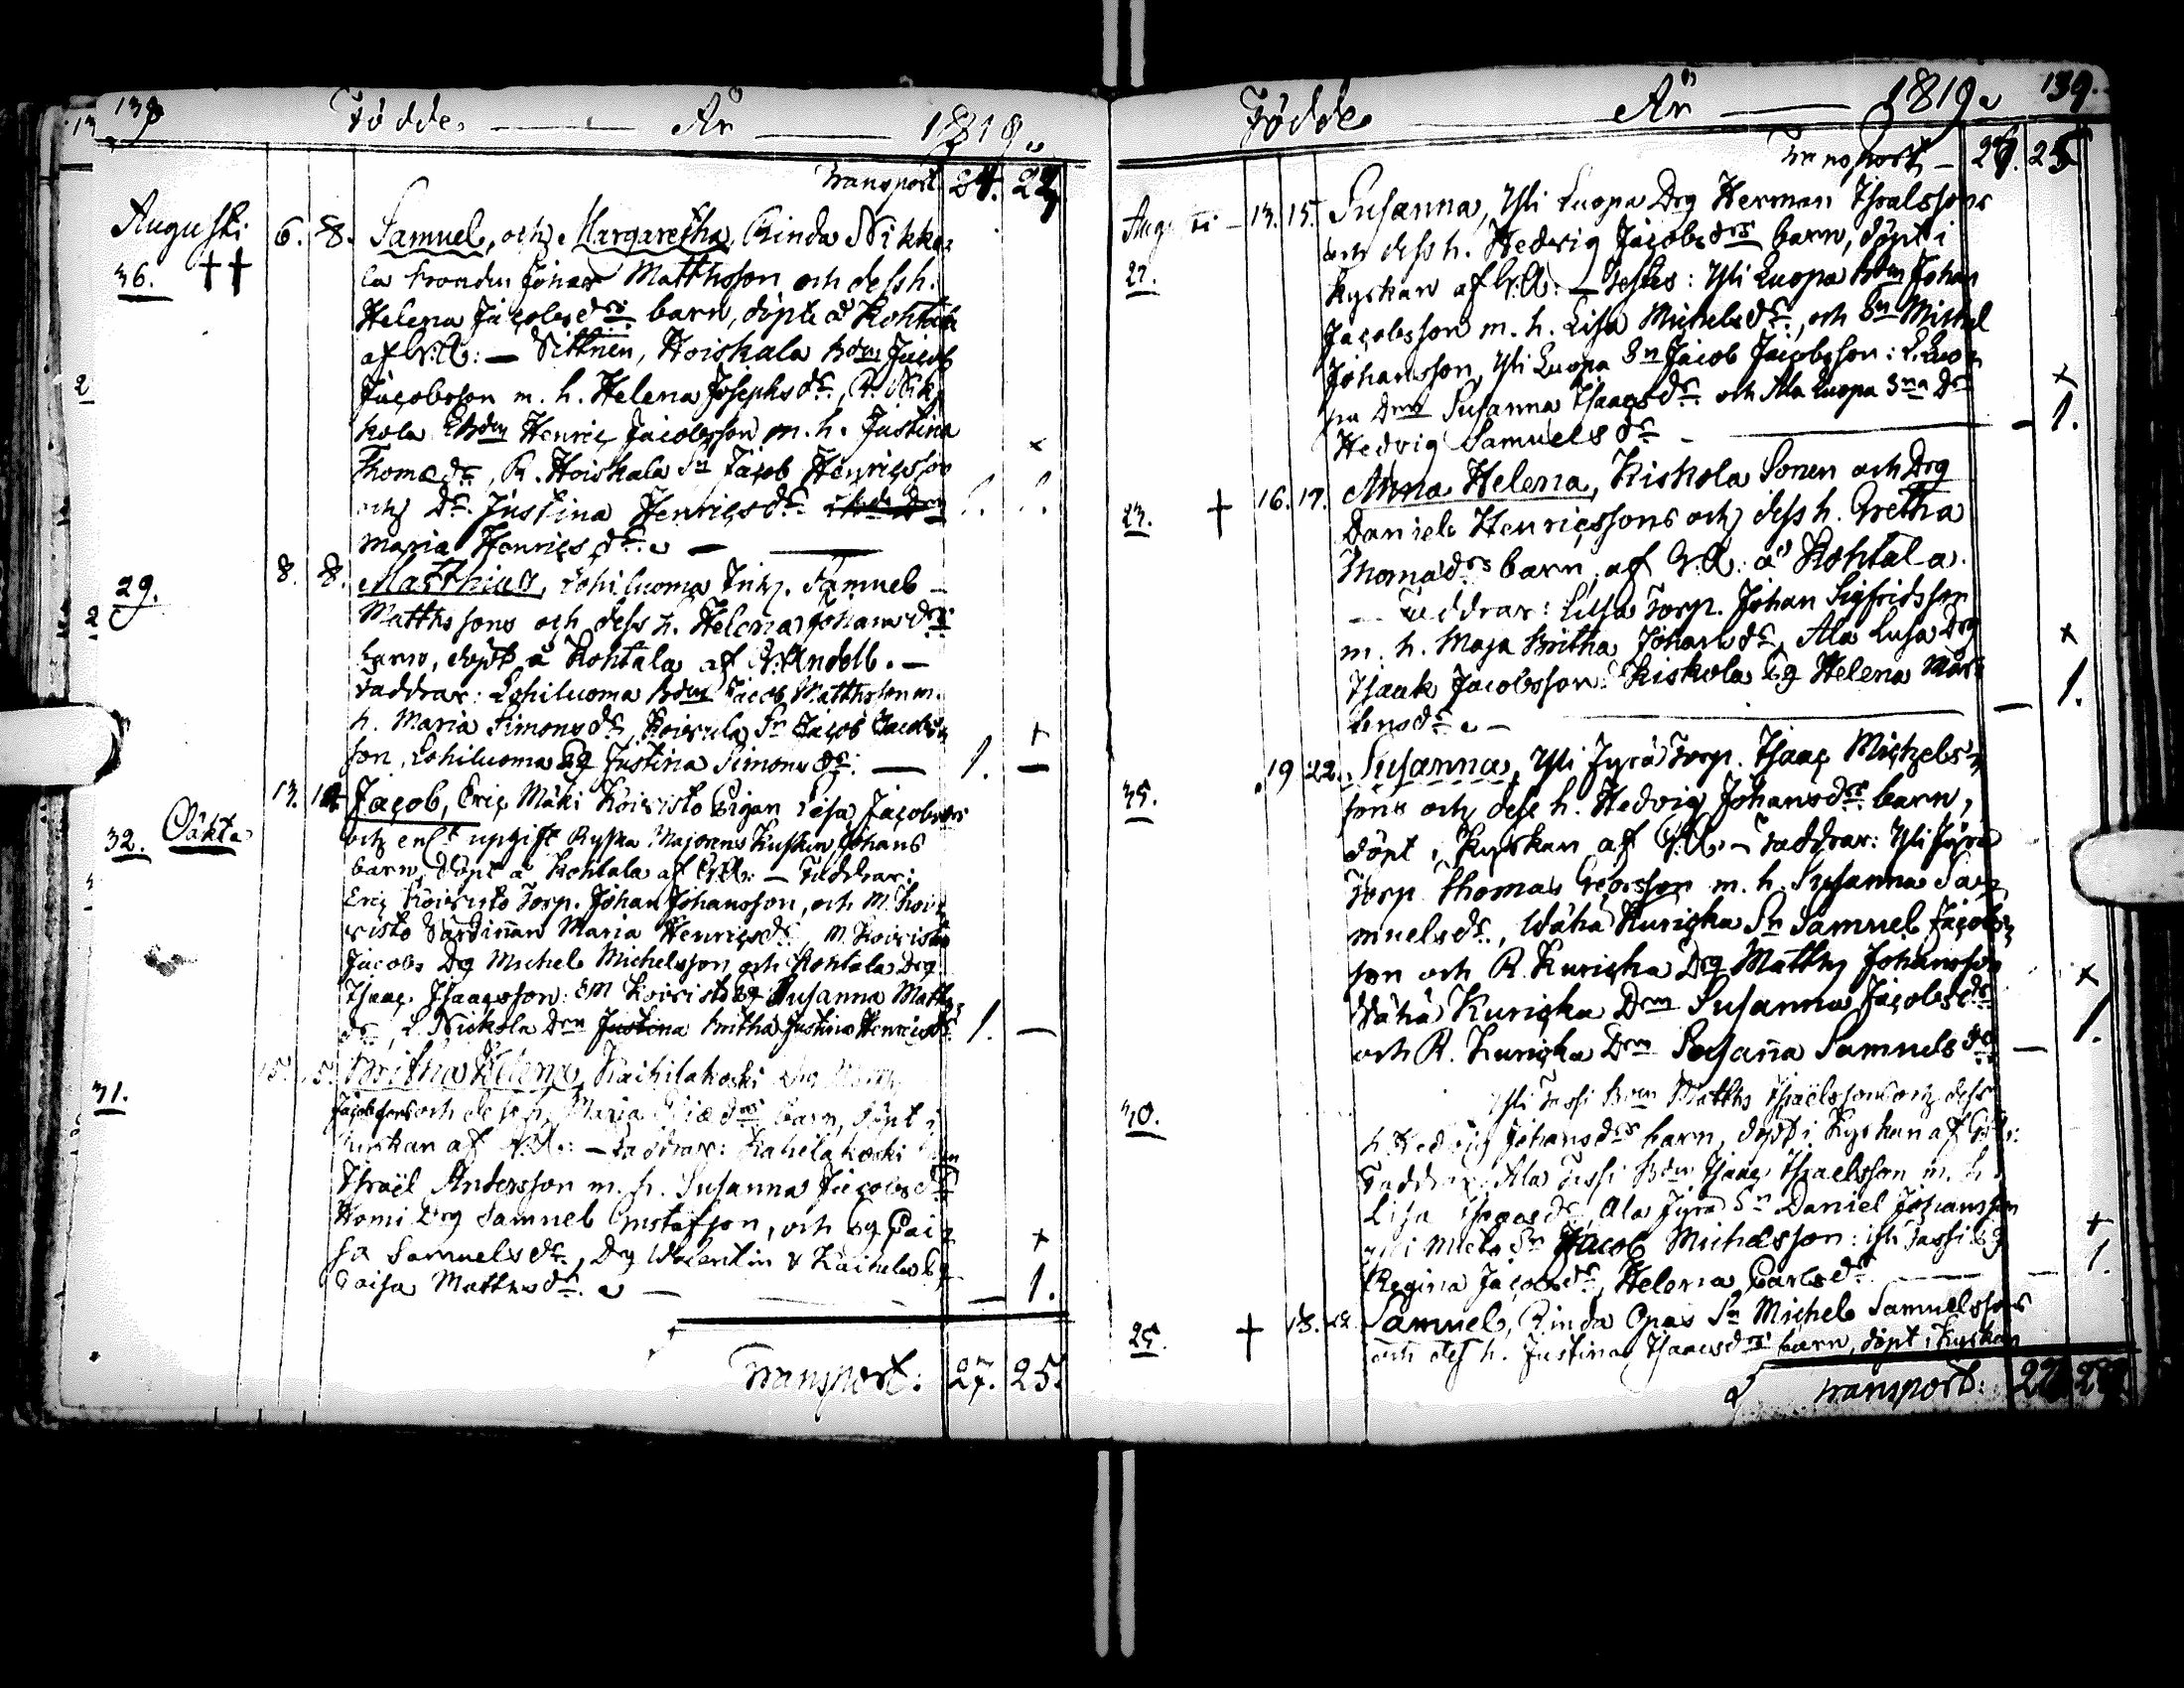 138 Födde År 1819.
Transport 24. 24
Augusti 6. 8. Samuel, och Margaretha, Rinda Nikko-
36. ††
la Bonden Johan Matthsson och dess h.
Helena Jacobsdrs barn, döpte å Kohtala
af V.A: — Vittnen, Hoiskala Bdn Jacob
Jacobsson m. h. Helena Josephsdr., R. Nik-
kola Bdn Henric Jacobsson m. h. Justina
Thomædr, R. Hoiskala Sn Jacob Henricsson
och Dr. Justina Henricsdr.
Maria Henricsdr. —
29. 8. 8. Matthias, Lohiluoma Inh. Samuel
Matthssons och dess h. Helena Johansdrs
barn, döpt å Kohtala af V. Andell. —
Faddrar: Lohiluoma Bdn Jacob Matthsson m.
h. Maria Simonsdr, Koivula Sn Jacob Jacobs-
son, Lohiluoma Pg Justina Simonsdr: — 1. —
32. Oäkta 13. 14 Jacob, Eric Mäki Koivisto Pigan Lisa Jacobsdrs
och enl. upgift Ryska Majorens Kusken Johans
barn, döpt å Kohtala af V.A: — Faddrar:
Eric Koivisto Torp. Johan Johansson, och M. Koi-
visto Värdinnan Maria Henricsdr, M. Koivisto
Jacobs Dg Michel Michelsson och Kohtala Drg
Isaac Isaacsson: EM Koivisto Pg Susanna Matths-
dr, L. Nickola Drn Justina Britha Justina Henricsdr 1. —
31. 15. 15. Britha Helena, Kaihilakoski
Jacobssons och dess h. Maria drs barn, döpt i
Kyrkan af V.A: — Faddrar: Kaihilakoski
Israël Andersson m. h. Susanna Jacobsdr
Homi Drg Samuel Gustafsson, och Pg Cai-
sa Samuelsdr, Drg Valentin Pg
Caisa Matthsdr. — 1.
Transport: 27. 25.
Födde År 1819. 139.
Transport — 27. 25
Augusti — 13. 15. Susanna, Yli Luopa Drg Herman Isralssons
och dess h. Hedvig Jacobsdrs barn, döpt i
27.
Kyrkan af V.A: — Testes: Yli Luopa Bdn Johan
Jacobsson m. h. Lisa Michelsdr:, och Sn Michel
Johansson, Yli Luopa Sn Jacob Jacobsson: L. Luo-
pa Drn Susanna Isaacsdr. och Ala Luopa Sna Dr
Hedvig Samuelsdr — 1.
23. † 16. 17. Anna Helena, Kiskola Sonen och Drg
Daniel Henricssons och dess h. Gretha
Thomædrs barn, af V.A: å Kohtala.
— Faddrar: Torp. Johan Sigfridsson
m. h. Maja Britha Johansdr, Ala Drg
Isaak Jacobsson: Kiskola Pg Helena Mår-
tensdr. — 1.
35. 19 22. Susanna, Yli Jyrä Torp. Isaac Michels-
sons och dess h. Hedvig Johansdrs barn,
döpt i Kyrkan af V.A. — Faddrar: Yli Jyrä
Torp. Thomas m. h. Susanna Sa-
muelsdr., Wähä Kuricka Sn Samuel Jacobs-
son och R. Kuricka Drg Matths Johansson
Wähä Kuricka Drn Susanna Jacobsdr
och R. Kuricka Drn Susanna Samuelsdr — 1.
30. Yli Jassi Bdn Matths Israëlssons och dess
h. Hedvig Johansdrs barn, döpt i Kyrkan af V.A:
Faddrar: Ala Jassi Bdn Isaac Israelsson m. h.
Lisa Isaacsdr, Ala Jyrä Sn Daniel Johansson
Sn Jacob Michelsson: Yli Jassi Pg
Regina Jacobsdr, Helena Carlsdr — 1.
25. † 18. 22. Samuel, Rinda Opas Sn Michel Samuelssons
och dess h. Justina Isaacsdrs barn, döpt i Kyrkan
Transport: 27. 29